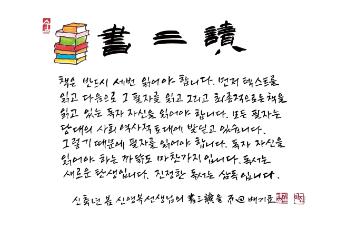 書三讀
책은 반드시 세번 읽어야 합니다. 먼저 텍스트를
읽고 다음으로 그 필자를 읽고 그리고 최종적으로는 책을
읽고 있는 독자 자신을 읽어야 합니다. 모든 필자는
당대의 사회 역사적 토대에 발딛고 있습니다.
그렇기 때문에 필자를 읽어야 합니다. 독자 자신을
읽어야 하는 까닭도 마찬가지입니다. 독서는
새로운 탄생입니다. 진정한 독서는 삼독입니다.
신축년 봄 신영복선생님의 書三讀을